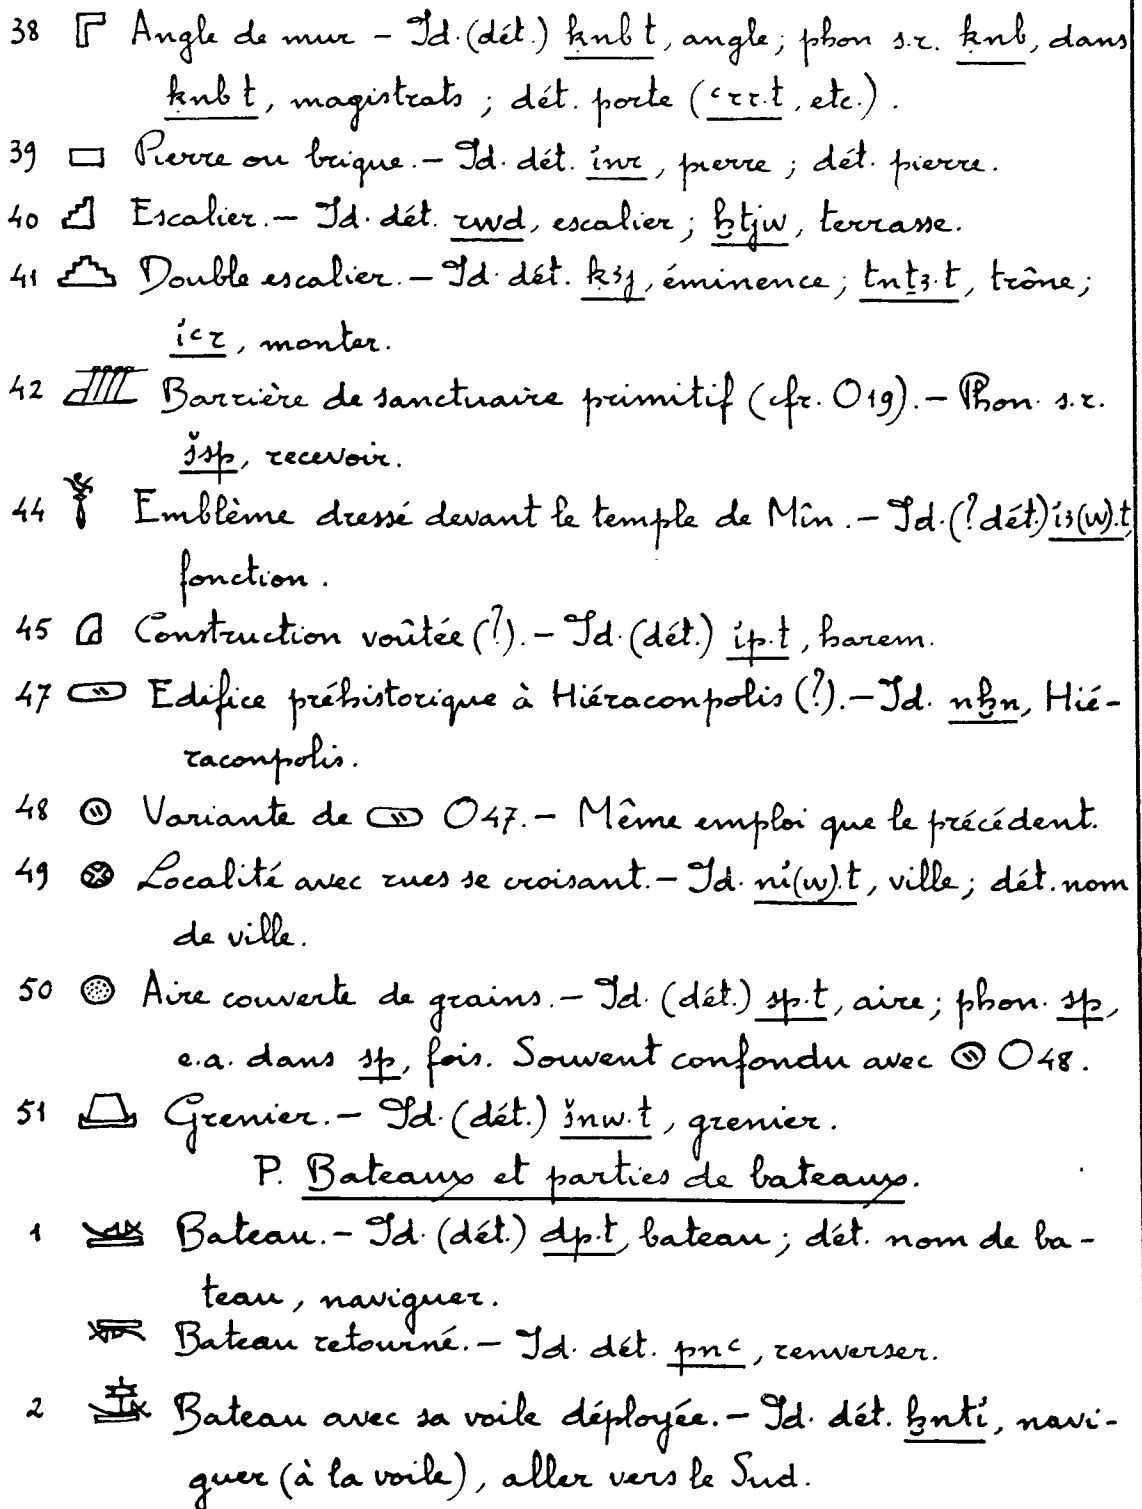 38 𓊌 Angle de mur – Id. (dét.) ḳnb t, angle; phon s.r. ḳnb, dans
ḳnb t, magistrats ; dét. porte (ꜥrr.t, etc.) .
39 𓊍 Pierre ou brique. – Id. dét. inr, pierre ; dét. pierre.
40 𓊎 Escalier. – Id. dét. rwd, escalier ; ḫtjw, terrasse.
41 𓊏 Double escalier. – Id. dét. ḳꜣj, éminence ; tnṯꜣ.t, trône ;
iꜥr, monter.
42 𓊐 Barrière de sanctuaire primitif (cfr. O19). – Phon. s.r.
šsp, recevoir.
44 𓊒 Emblème dressé devant le temple de Mîn. – Id. (? dét.) iꜣ(w).t,
fonction .
45 𓊓 Construction voûtée (?). – Id. (dét.) ip.t, harem.
47 𓊕 Edifice préhistorique à Hiéraconpolis (?). – Id. nḫn, Hié-
raconpolis.
48 𓊖 Variante de 𓊕 O47. – Même emploi que le précédent.
49 𓊖 Localité avec rues se croisant. – Id. ni(w).t, ville ; dét. nom
de ville.
50 𓊗 Aire couverte de grains. – Id. (dét.) sp.t, aire ; phon. sp,
e.a. dans sp, fois. Souvent confondu avec O48.
51 Grenier. – Id. (dét.) šnw.t, grenier.
P. Bateaux et parties de bateaux.
1 Bateau. – Id. (dét.) dp.t, bateau ; dét. nom de ba-
teau, naviguer.
Bateau retourné. – Id. dét. pnꜥ, renverser.
2 Bateau avec sa voile déployée. – Id. dét. ḫnti, navi-
guer (à la voile), aller vers le Sud.